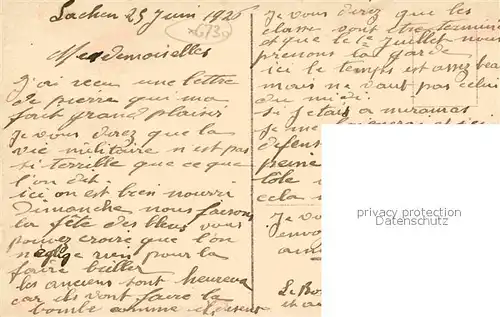 Lachen 25 Juin 1926
Mesdemoiselles
J'ai reçu une lettre
de pierre qui m'a
fait grand plaisir
Je vous direz que la
vie militaire n'est pas
si terrible que ce que
l'on dit.
ici on est bien nourri
Dimanche nous faisons
la fête des bleus vous
pouvez croire que l'on
néglige rien pour la
faire briller
les anciens sont heureux
car ils vont faire la
bombe comme ils disent
Je vous direz que les
classe vont être
et que le 1er Juillet nous
prenons la garde
ici le temps est assez beau
mais ne vaut pas celui
du midi.
si J'étais a miramas
Je me
peine
cela
Je vous
privacy protection
Datenschutz